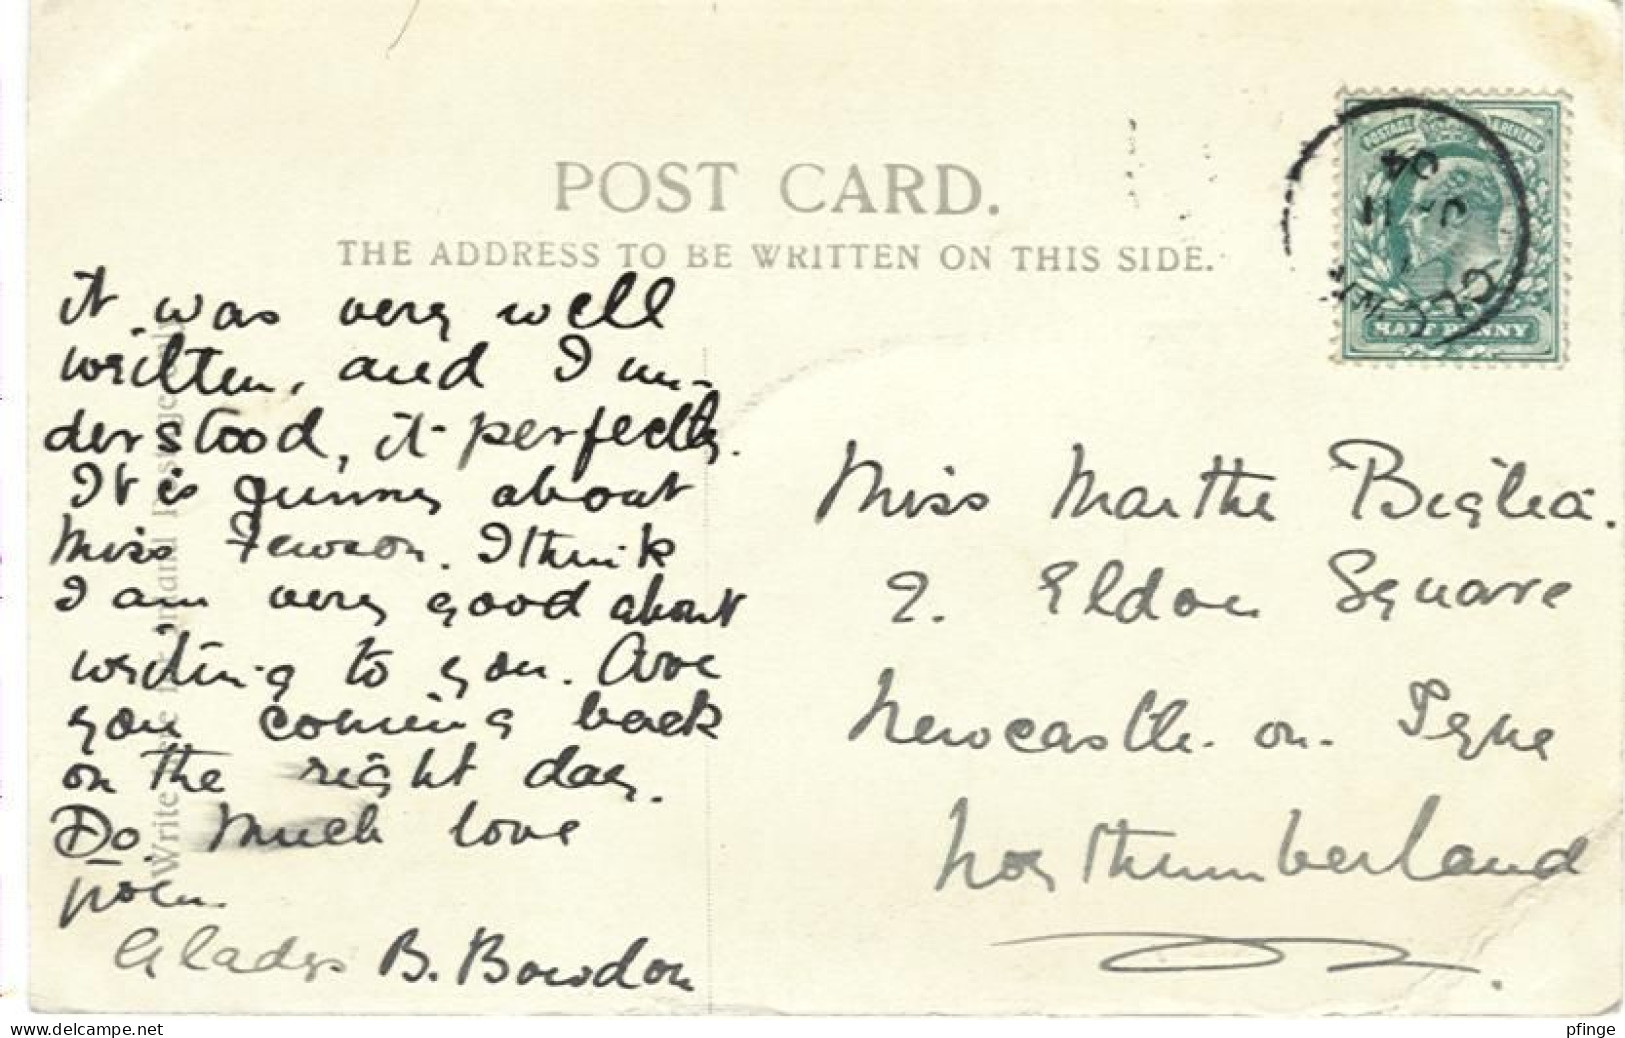 POST CARD.
THE ADDRESS TO BE WRITTEN ON THIS SIDE.
POSTAGE & REVENUE
04
HALF PENNY
it was very well
written, and I un-
derstood, it perfectly.
It is funny about
Miss Fewson. I think
I am very good about
writing to you. Are
you coming back
on the right day.
Do. Much love
from
Gladys B. Bowdon
Miss Marthe Biglia.
2. Eldon Square
Newcastle. on. Tyne
Northumberland
pfinge
www.delcampe.net